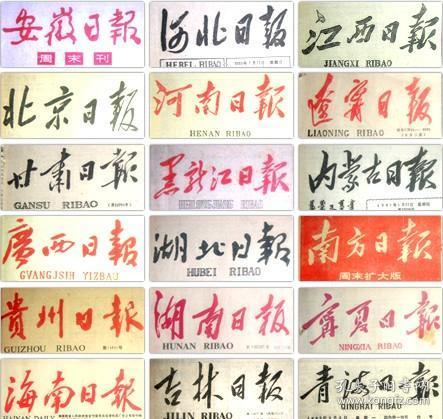 安徽日報
周末刊
河北日报
HEBEI RIBAO
江西日报
JIANGXI RIBAO
北京日报
河南日報
HENAN RIBAO
遼寧日報
LIAONING RIBAO
甘肃日報
GANSU RIBAO
黑龍江日報
HEILONGJIANG RIBAO
内蒙古日報
廣西日報
GVANGJSIH YIZBAU
湖北日報
HUBEI RIBAO
南方日報
周末扩大版
贵州日報
GUIZHOU RIBAO
湖南日报
HUNAN RIBAO
寧夏日報
NINGXIA RIBAO
海南日报
HAINAN DAILY
吉林日报
JILIN RIBAO
青海日報
QINGHAI RIBAO